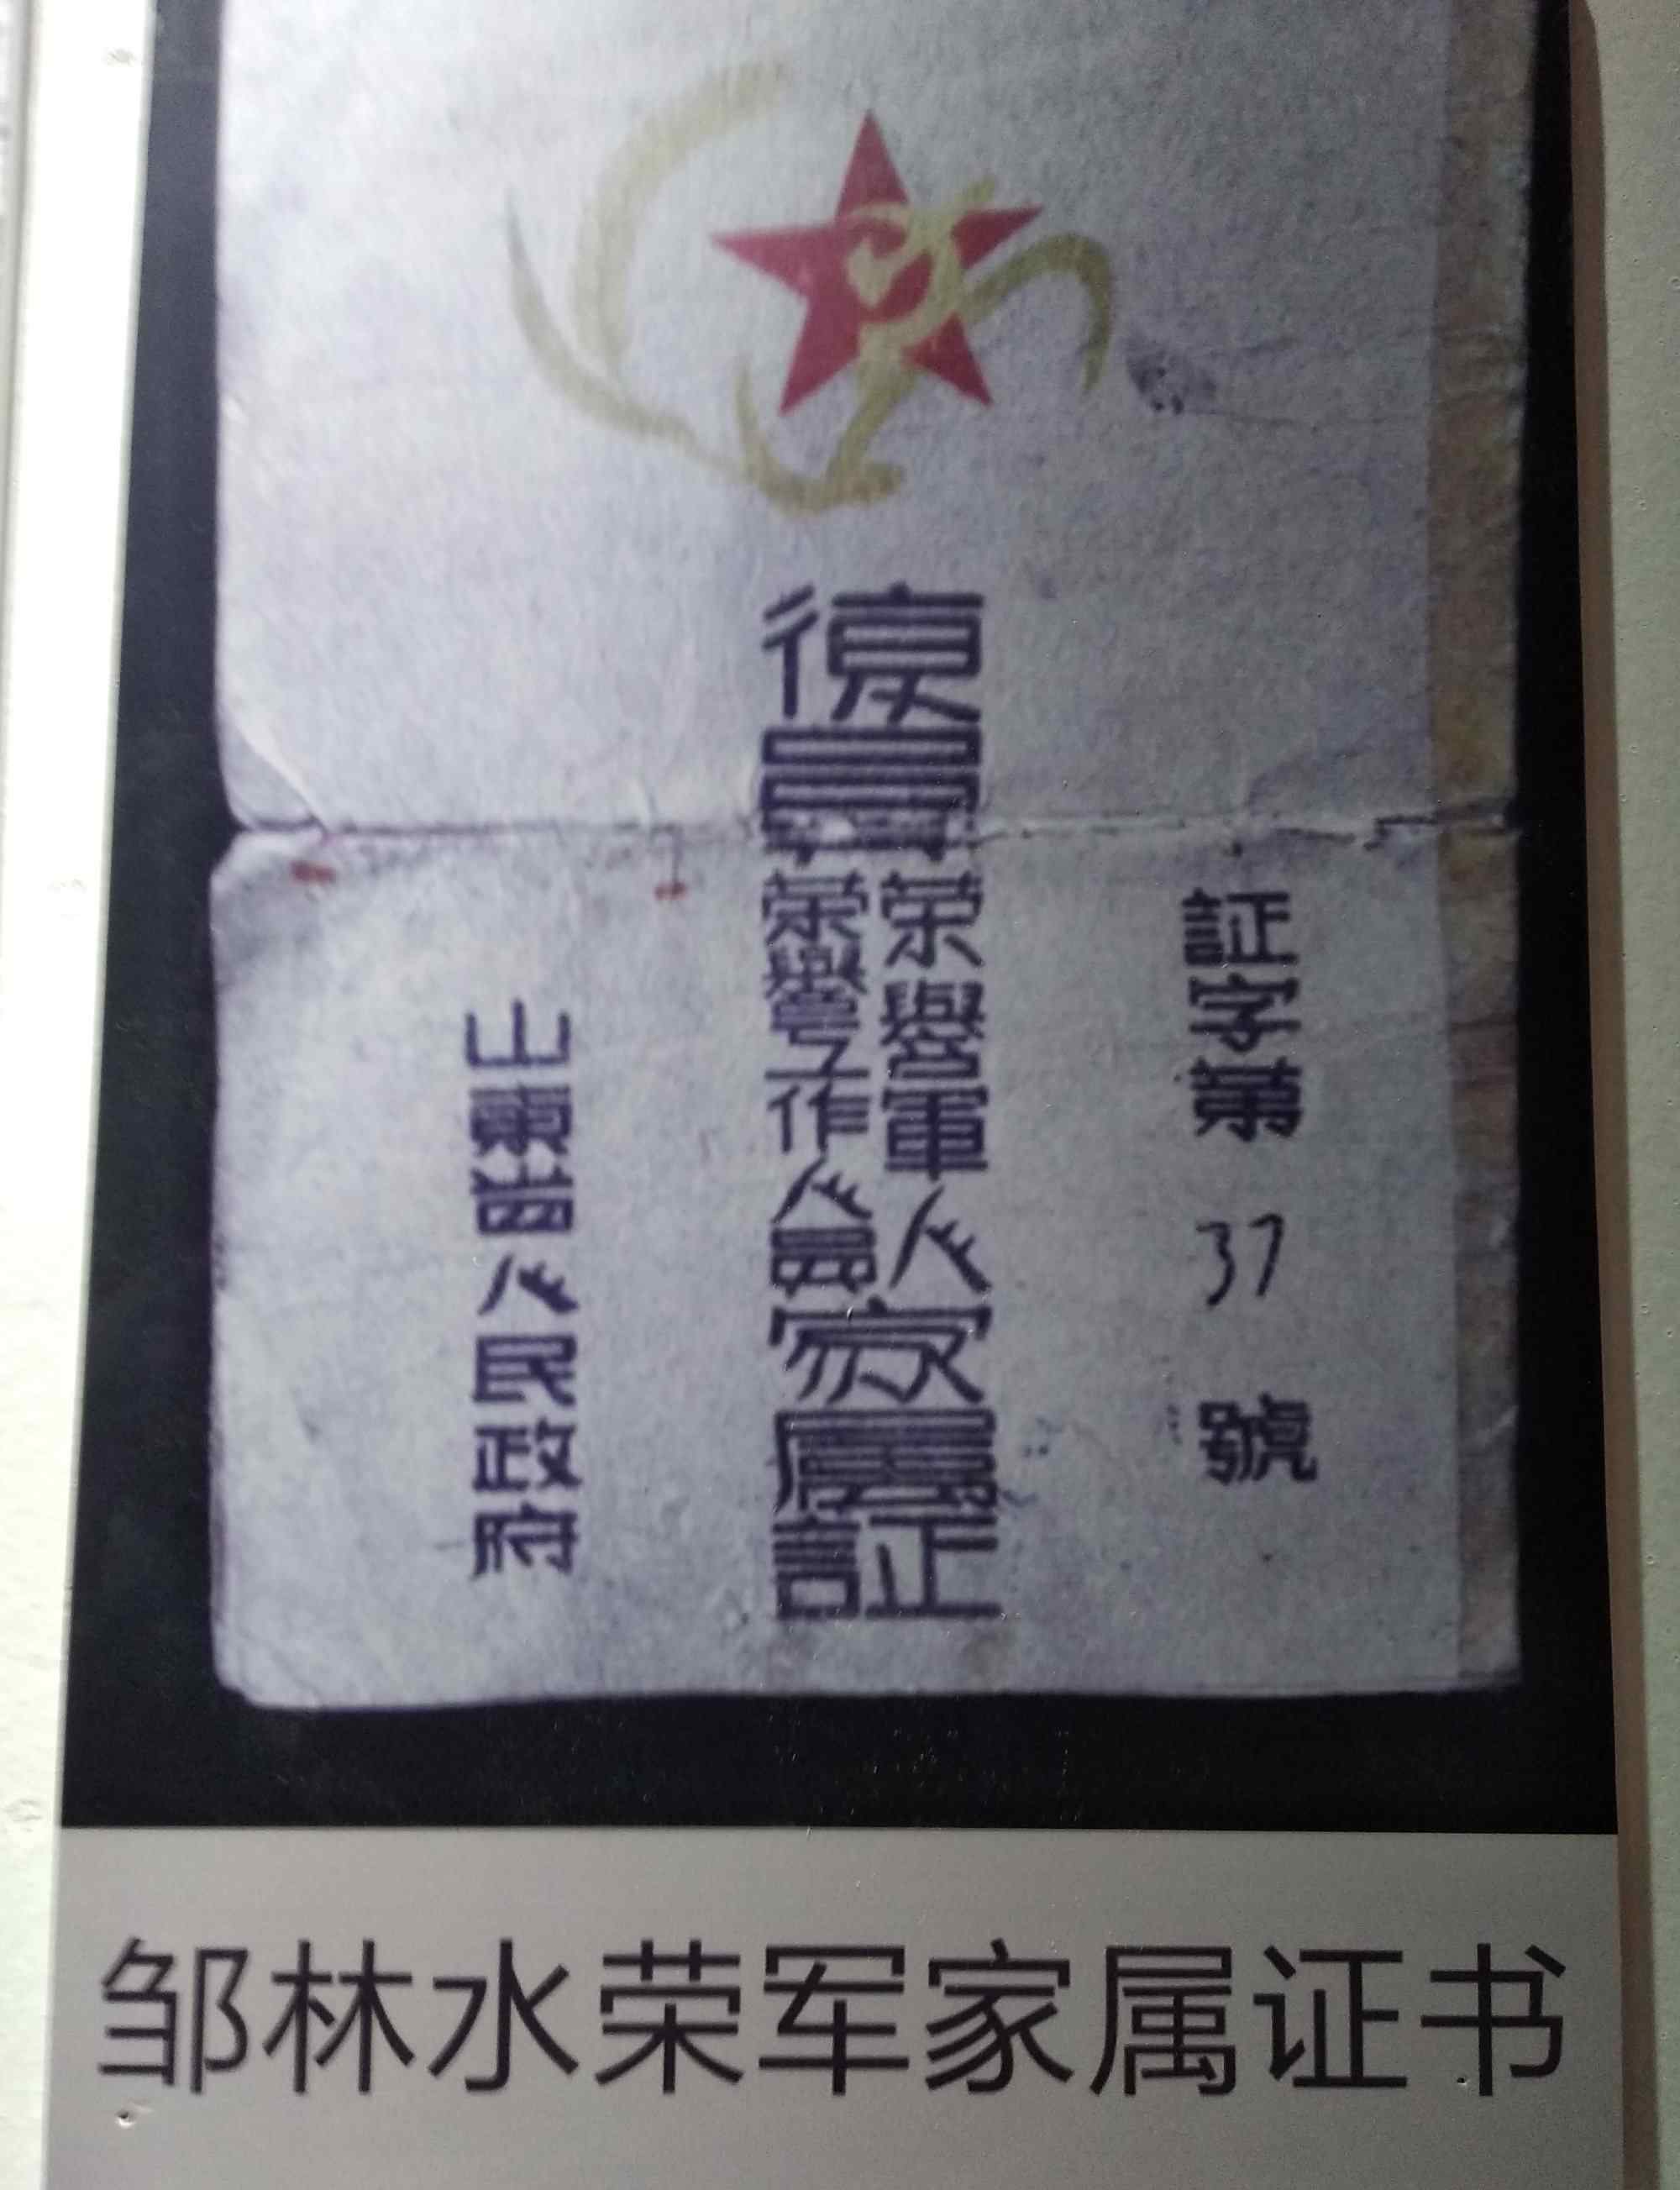 証字第 37 號
復員
榮譽軍人
榮譽工作人員
家屬証
山東省人民政府
邹林水荣军家属证书